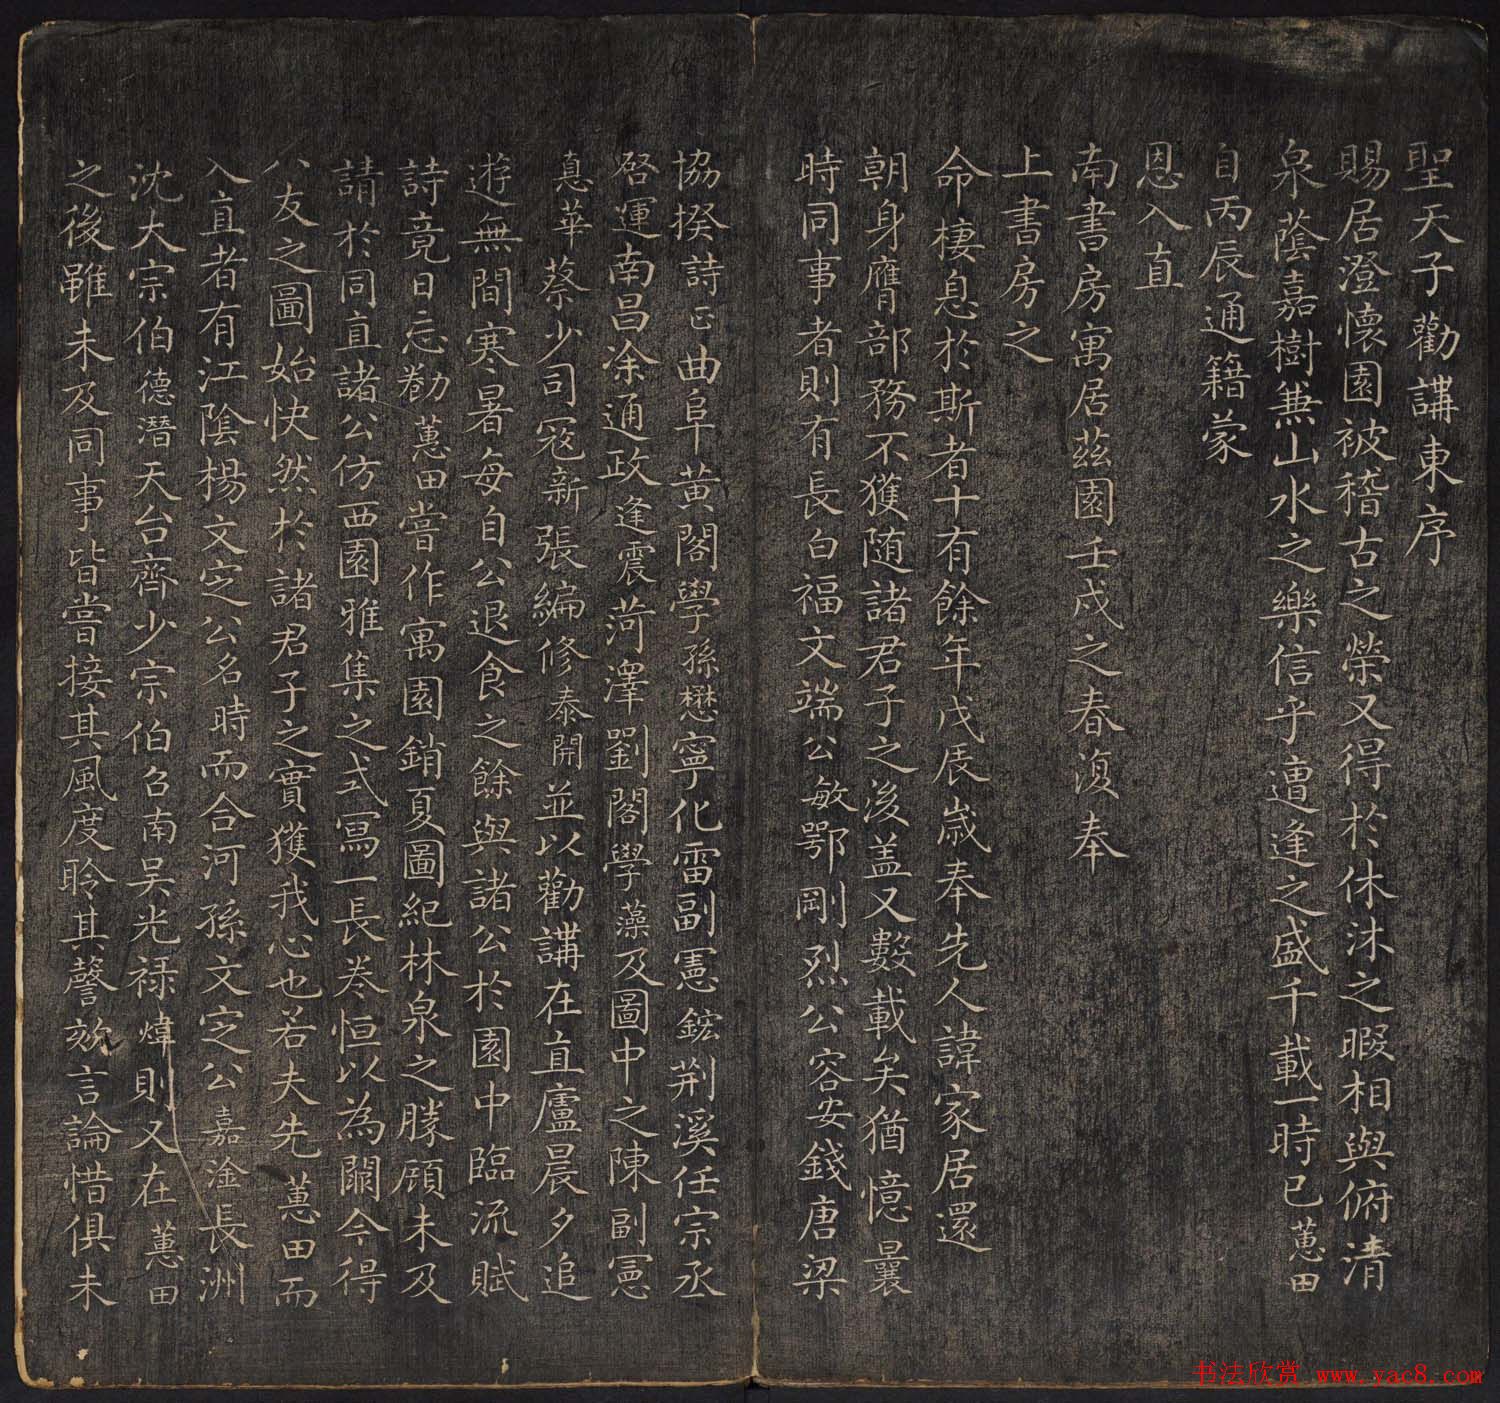 聖天子勸講東序
賜居澄懷園被稽古之榮又得於休沐之暇相與俯清
泉蔭嘉樹兼山水之樂信乎遭逢之盛千載一時已蕙田
自丙辰通籍蒙
恩入直
南書房寓居茲園壬戌之春復奉
上書房之
命棲息於斯者十有餘年戊辰歲奉先人諱家居還
朝身膺部務不獲随諸君子之後盖又數載矣猶憶曩
時同事者則有長白福文端公敏鄂剛烈公容安錢唐梁
協揆詩正曲阜黃閣學孫懋寧化雷副憲鋐荆溪任宗丞
啓運南昌涂通政逢震菏澤劉閣學藻及圖中之陳副憲
惪華蔡少司寇新張編修泰開並以勸講在直廬晨夕追
遊無間寒暑每自公退食之餘與諸公於園中臨流賦
詩竟日忘勌蕙田嘗作寓園銷夏圖紀林泉之勝頋未及
請於同直諸公仿西園雅集之式冩一長卷恒以為闕今得
八友之圖始快然於諸君子之實獲我心也若夫先蕙田而
入直者有江陰楊文定公名時而合河孫文定公嘉淦長洲
沈大宗伯德潛天台齊少宗伯召南吴光禄煒則又在蕙田
之後雖未及同事皆嘗接其風度聆其謦欬言論惜俱未
书法欣赏 www.yac8.com